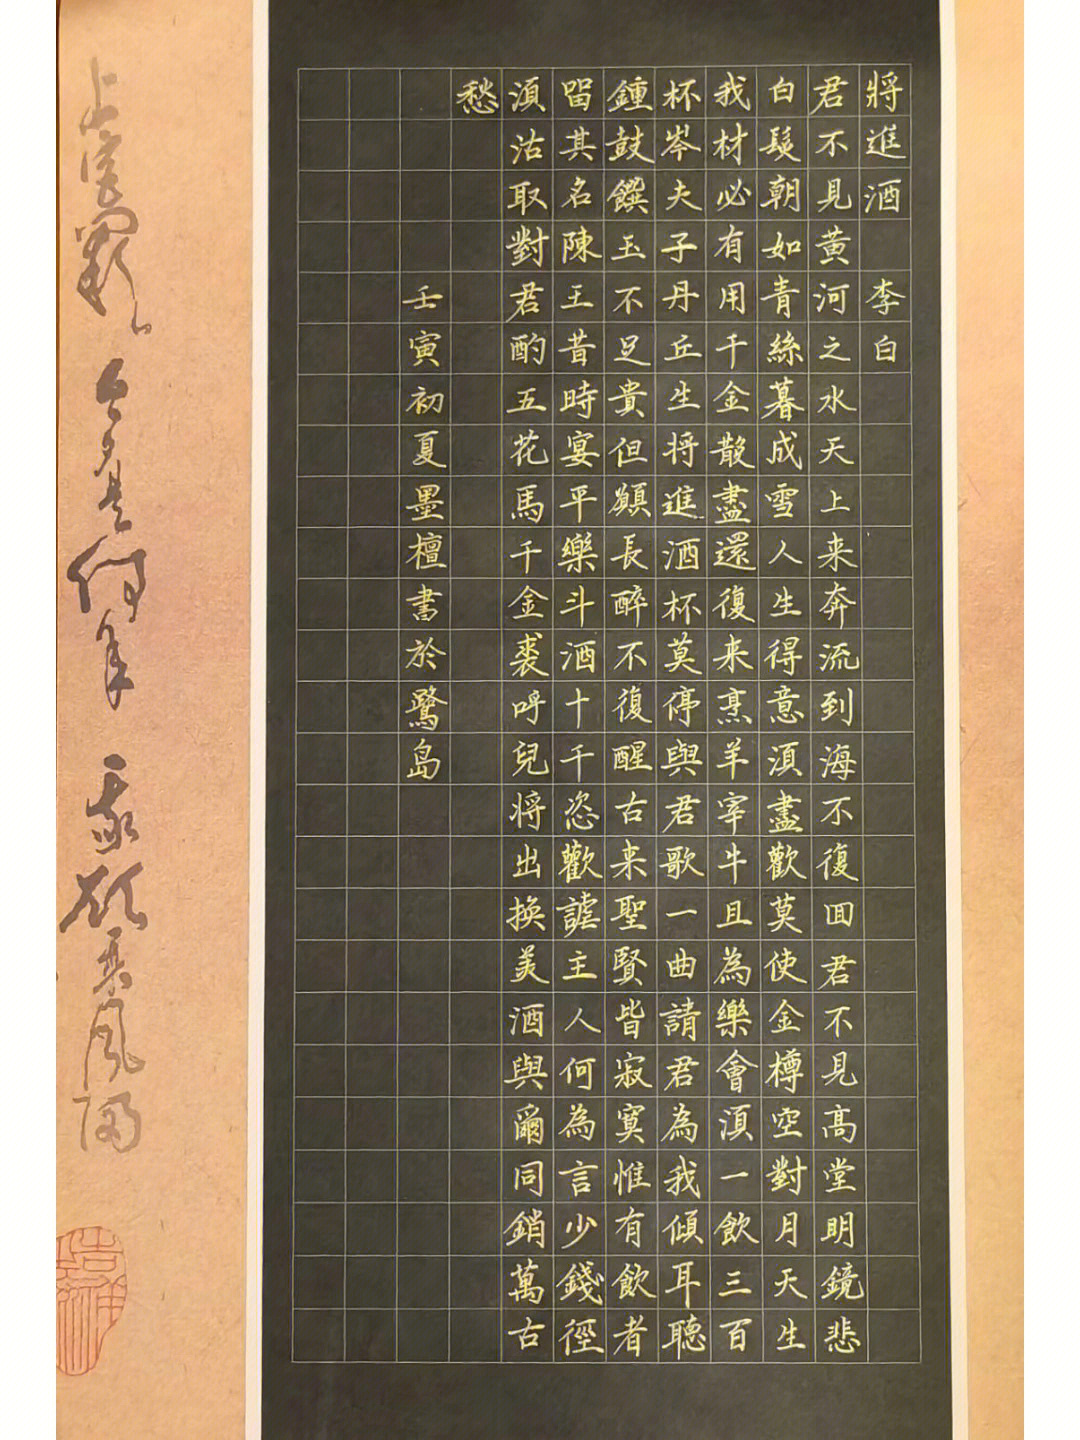 將進酒 李白
君不見黃河之水天上来奔流到海不復囬君不見高堂明鏡悲
白髮朝如青絲暮成雪人生得意湏盡歡莫使金樽空對月天生
我材必有用千金散盡還復来烹羊宰牛且為樂會湏一飲三百
杯岑夫子丹丘生将進酒杯莫停與君歌一曲請君為我傾耳聽
鍾鼓饌玉不足貴但願長醉不復醒古来聖賢皆寂寞惟有飲者
留其名陳王昔時宴平樂斗酒十千恣歡謔主人何為言少錢徑
湏沽取對君酌五花馬千金裘呼兒将出換美酒與爾同銷萬古
愁
壬寅初夏墨檀書於鷺島
上宮闕今夕是何年我欲乘風歸